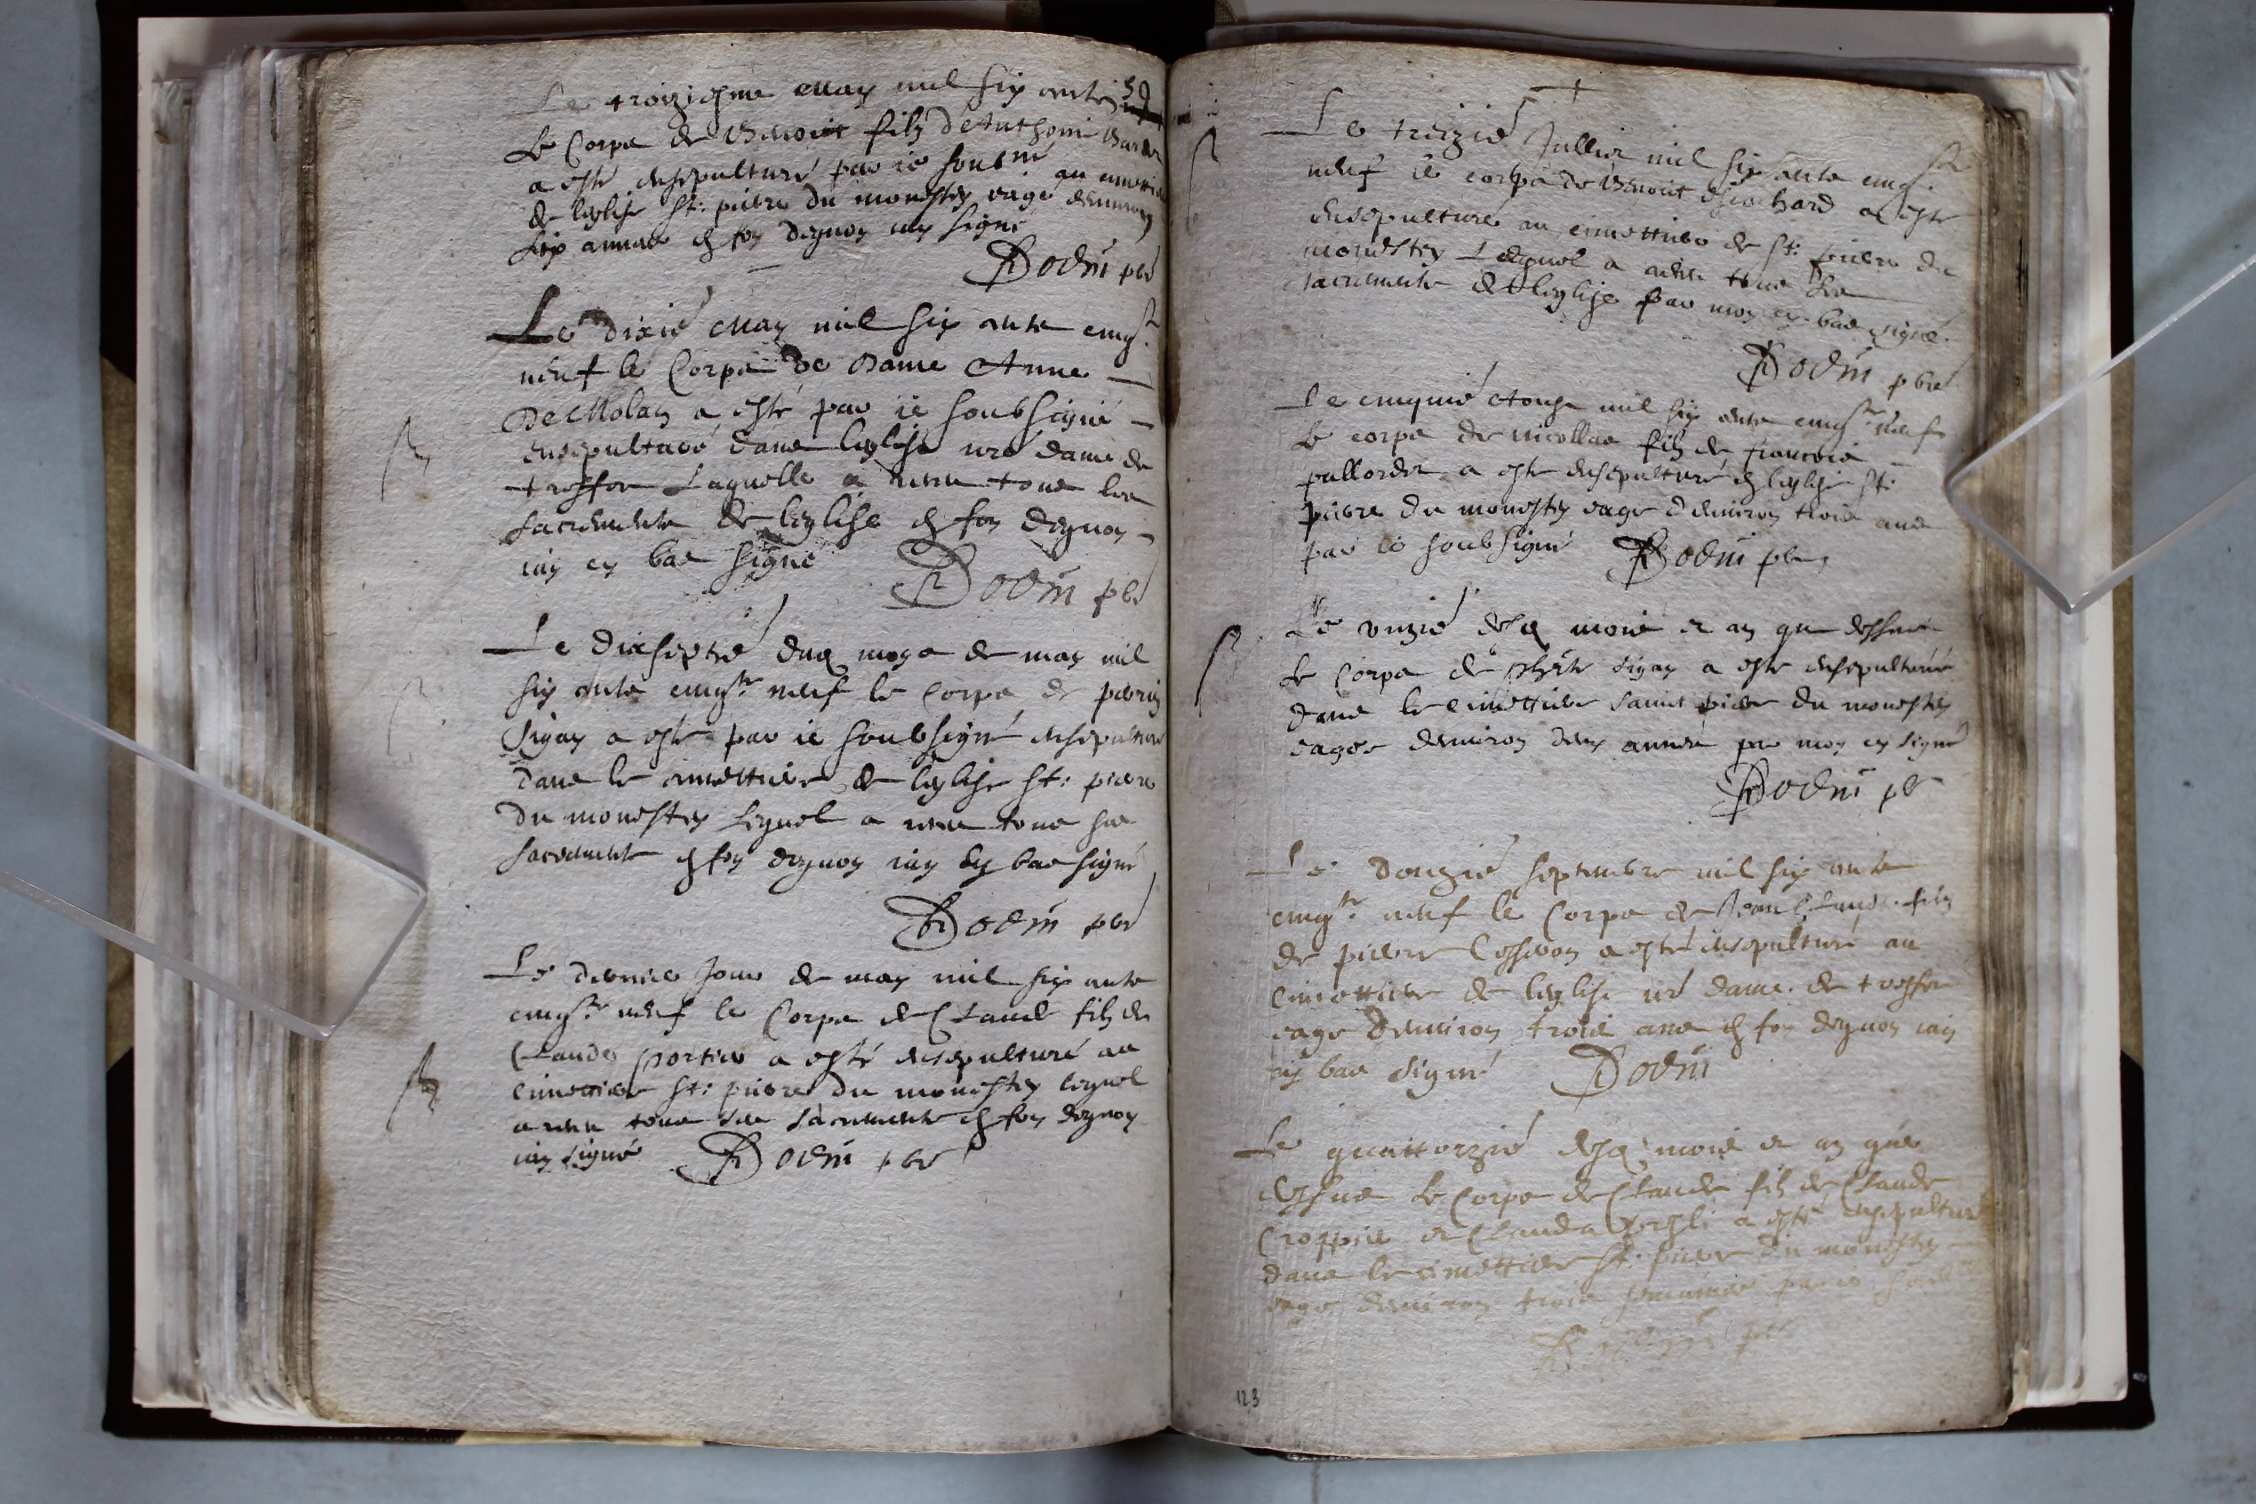 Le troiziesme May mil six cents 59
Le Corps de Benoict filz de Anthoine
a esté ensepulturé par ie soubné au cimetie
de leglise St: pierre du monestey eagé denviron
six annees & foy dequoy iay signé
Bodin pbr
Le dixié May mil six cents cinqte
neuf le Corps de Dame Anne
De Molan a esté par ie soubsigné
ensepulturé dans leglise nrē dame de
treffor Laquelle a receu tous les
sacrements de leglise & foy dequoy
iay cy bas signé Bodin pbr
Le dixseptié dud moys de may mil
six cents cinqte neuf le Corps de pierre
sigan a esté par ie soubsigné ensepulturé
dans le cimettiere de leglise St: pierre
du monestey Lequel a receu tous ses
sacrements & foy dequoy iay cy bas signé
Bodin pbr
Le dernier Jour de may mil six cents
cinqte neuf le Corps de Claude filz de
Claude portier a esté ensepulturé au
cimettiere St: pierre du monestey lequel
a receu tous ses sacrements & foy dequoy
iay signé Bodin pbr
Le treizié Jullier mil six cents cinqte
neuf le corps de Benoict a esté
ensepulturé au cimettiere de St: pierre du
monestey Lequel a receu tous les
sacrements de leglise par moy cy bas signé.
Bodin pbré
Le cinquié Aoust mil six cents cinqte neuf
Le corps de nicollas filz de francois
pallordet a esté ensepulturé & leglise St:
pierre du monestey eagé denviron trois ans
par ie soubsigné Bodin pbr
Le unzié desd mois et an que dessus
Le Corps de sigan a esté ensepulturé
dans le cimettiere sainct pierre du monestey
eagee denviron deux annees par moy cy signé
Bodin pbr
Le douzié septembre mil six cents
cinqte neuf le Corps de Jean Claude filz
de pierre a esté ensepulturé au
Cimettiere de leglise nrē dame de treffor
eagé denviron trois ans & foy dequoy iay
cy bas signé Bodin
Le quattorzié desd mois et an que
dessus Le Corps de Claude filz de Claude
Croppier et Clauda a esté ensepulturé
dans le cimettiere St: pierre du monestey
eagé denviron trois semaines par ie
Bodin pbr
123